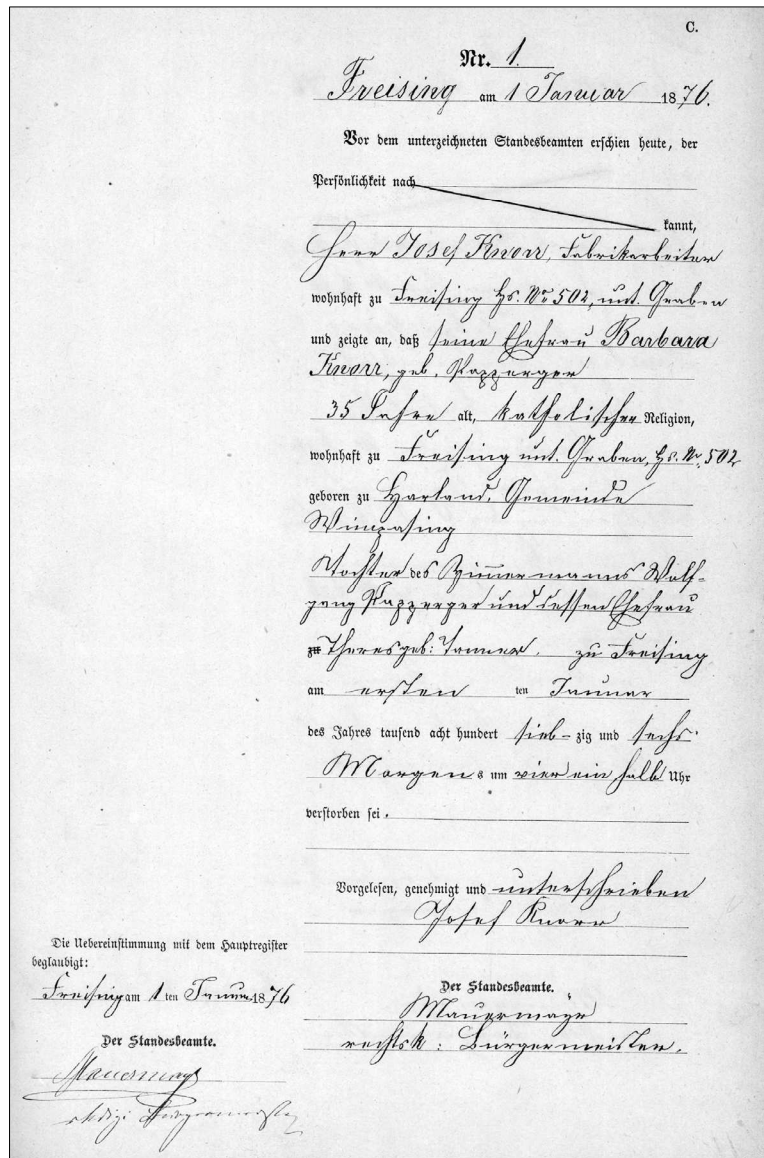 C.
Nr. 1.
Freising am 1 Januar 1876.
Vor dem unterzeichneten Standesbeamten erschien heute, der
Persönlichkeit nach
kannt,
Herr Josef Knorr, Fabrikarbeiter
wohnhaft zu Freising Hs. No 502, unt. Graben
und zeigte an, daß seine Ehefrau Barbara
Knorr, geb. Papperger
35 Jahre alt, katholischer Religion,
wohnhaft zu Freising unt. Graben, Hs. No. 502
geboren zu Harland, Gemeinde
Wimpasing
Tochter des Zimmermanns Wolf-
gang Papperger und dessen Ehefrau
zu Theres geb: Tanner. zu Freising
am ersten ten Januar
des Jahres tausend acht hundert sieb-zig und sechs
Morgens um vier ein halb Uhr
verstorben sei.
Vorgelesen, genehmigt und unterschrieben
Josef Knorr
Die Uebereinstimmung mit dem Hauptregister
beglaubigt:
Freising am 1 ten Januar 1876
Der Standesbeamte.
Mauermayr
Der Standesbeamte.
Mauermayr
rechtsk: Bürgermeister.